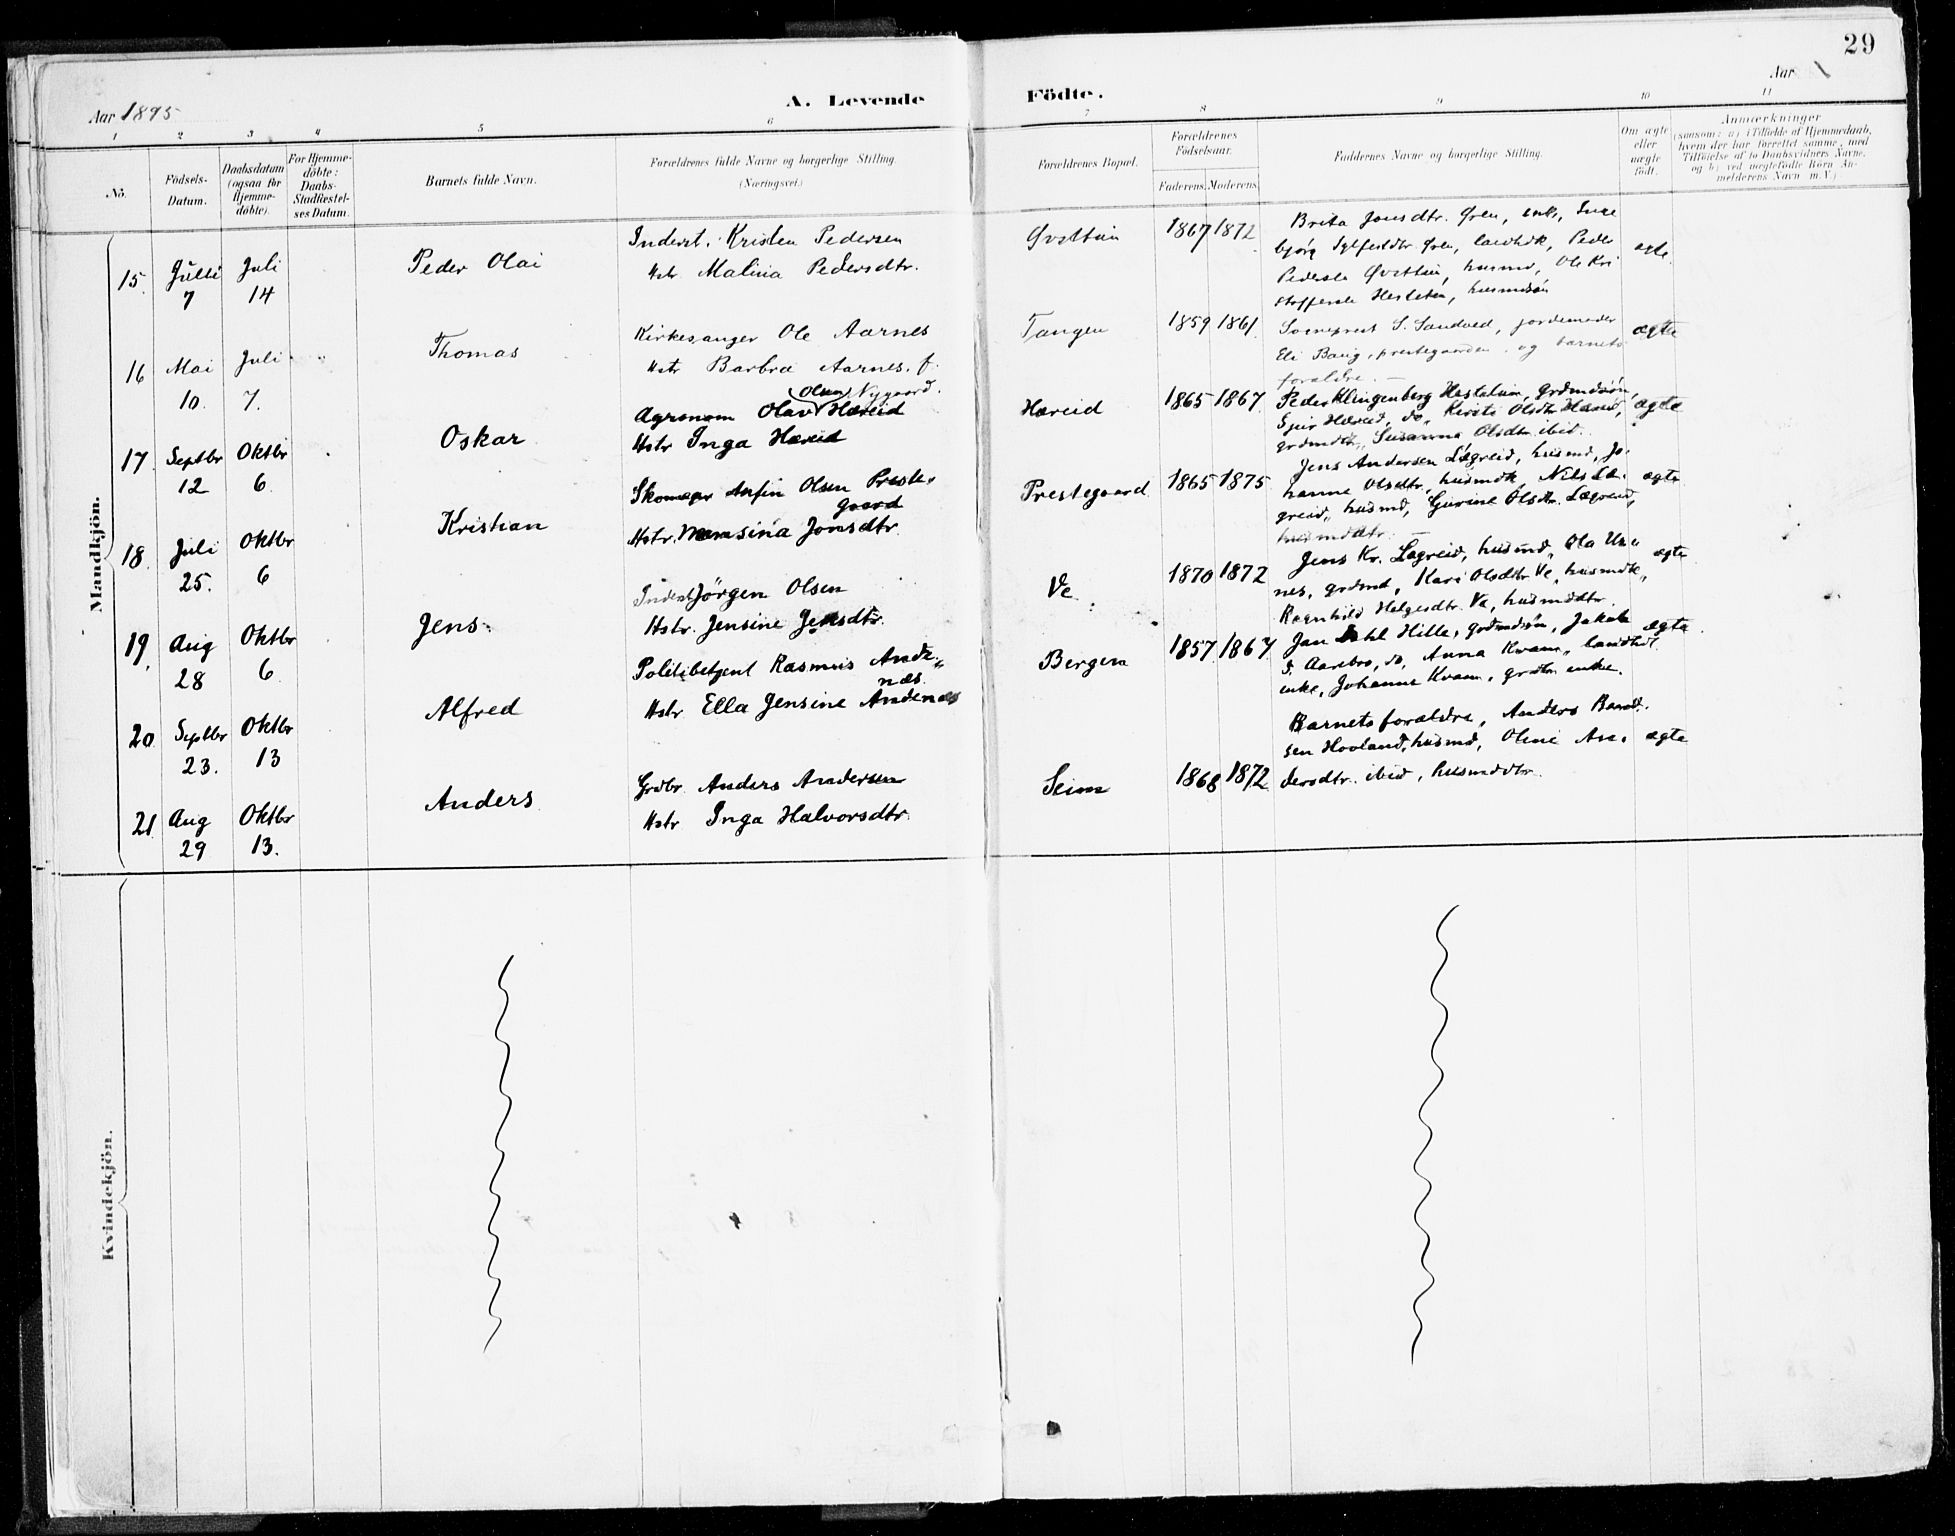 29
Aar 1895
A. Levende Födte.
Aar
1 2 3 4 5 6 7 8 9 10 11
No.
Födsels-Datum.
Daabsdatum (ogsaa for Hjemme-döbte).
For Hjemme-döbte: Daabs-Stadfestel-ses Datum.
Barnets fulde Navn.
Forældrenes fulde Navne og borgerlige Stilling.
(Næringsvei.)
Forældrenes Bopæl.
Forældrenes Födselsaar.
Faderens. Moderens.
Faddernes Navne og borgerlige Stilling.
Om ægte eller uægte födt.
Anmærkninger
(saasom: a) i Tilfælde af Hjemmedaab,
hvem der har forrettet samme, med
Tilföielse af to Daabsvidners Navne,
og b) ved uægtefödte Börn An-
melderens Navn m. V.)
Mandkjön.
15. Julii 7 Juli 14
Peder Olai
Inderst. Kristen Pedersen
Hstr. Malina Pedersdtr.
1867 1872
Brita Jonsdtr. Øren, enke, Inge
bjørg
Øren,
Peder
husmd, Ole Kri
stoffersen
ægte
16 Mai 10. Juli 7.
Thomas
Kirkesanger Ole Aarnes
Hstr Barbra Aarnes. f.
Nygaard.
Tangen
1859 1861
Sogneprest S. Sandved, jordemoder
Eli
prestegaarden. og barnets
forældre. —
ægte
17. Septbr 12 Oktbr 6
Oskar
Agronom Olav Olsen Hæreid
Hstr Inga Hæreid
Hæreid
1865 1867
Peder Klingenberg
grdmdsøn,
Hæreid, do, Kirsti Olsdtr Hæreid,
Susanna Olsdtr ibid.
ægte
18. Juli 25. Oktbr 6
Kristian
Skomager Anfin Olsen Preste-
gaard
Hstr. Jonsdtr.
Prestegaard
1865 1875
Jens Andersen Lægreid, husmd, Jo-
hanne Olsdtr, husmdk, Nils Læ-
greid, husmd, Gurine Olsdtr. Lægreid,
husmddtr. —
ægte
19. Aug 28 Oktbr 6
Jens
Inderst Jörgen Olsen
Hstr. Jensine Jensdtr.
Ve
1870 1872
Jens Kr. Lægreid, husmd, Ola
nes, grdmd, Kari Olsdtr Ve, husmdk,
Ragnhild Helgesdtr. Ve, husmddtr.
ægte
20 Septbr 23. Oktbr 13
Alfred
Politibetjent Rasmus Ande-
næs
Hstr. Ella Jensine Andenæs
Bergen
1857 1867
Jan Dahl Hille, grdmdsön, Jakob
Aarebro, do, Anna Kvam,
enke, Johanne Kvam, enke.
ægte
21. Aug 29 Oktbr 13.
Anders
Grdbr. Anders Andersen
Hstr Inga Halvorsdtr.
Seim
1868 1872
Barnets forældre, Anders
sen Hovland, husmd, Oline An-
dersdtr. ibid, husmddtr.
ægte
Kvindekjön.